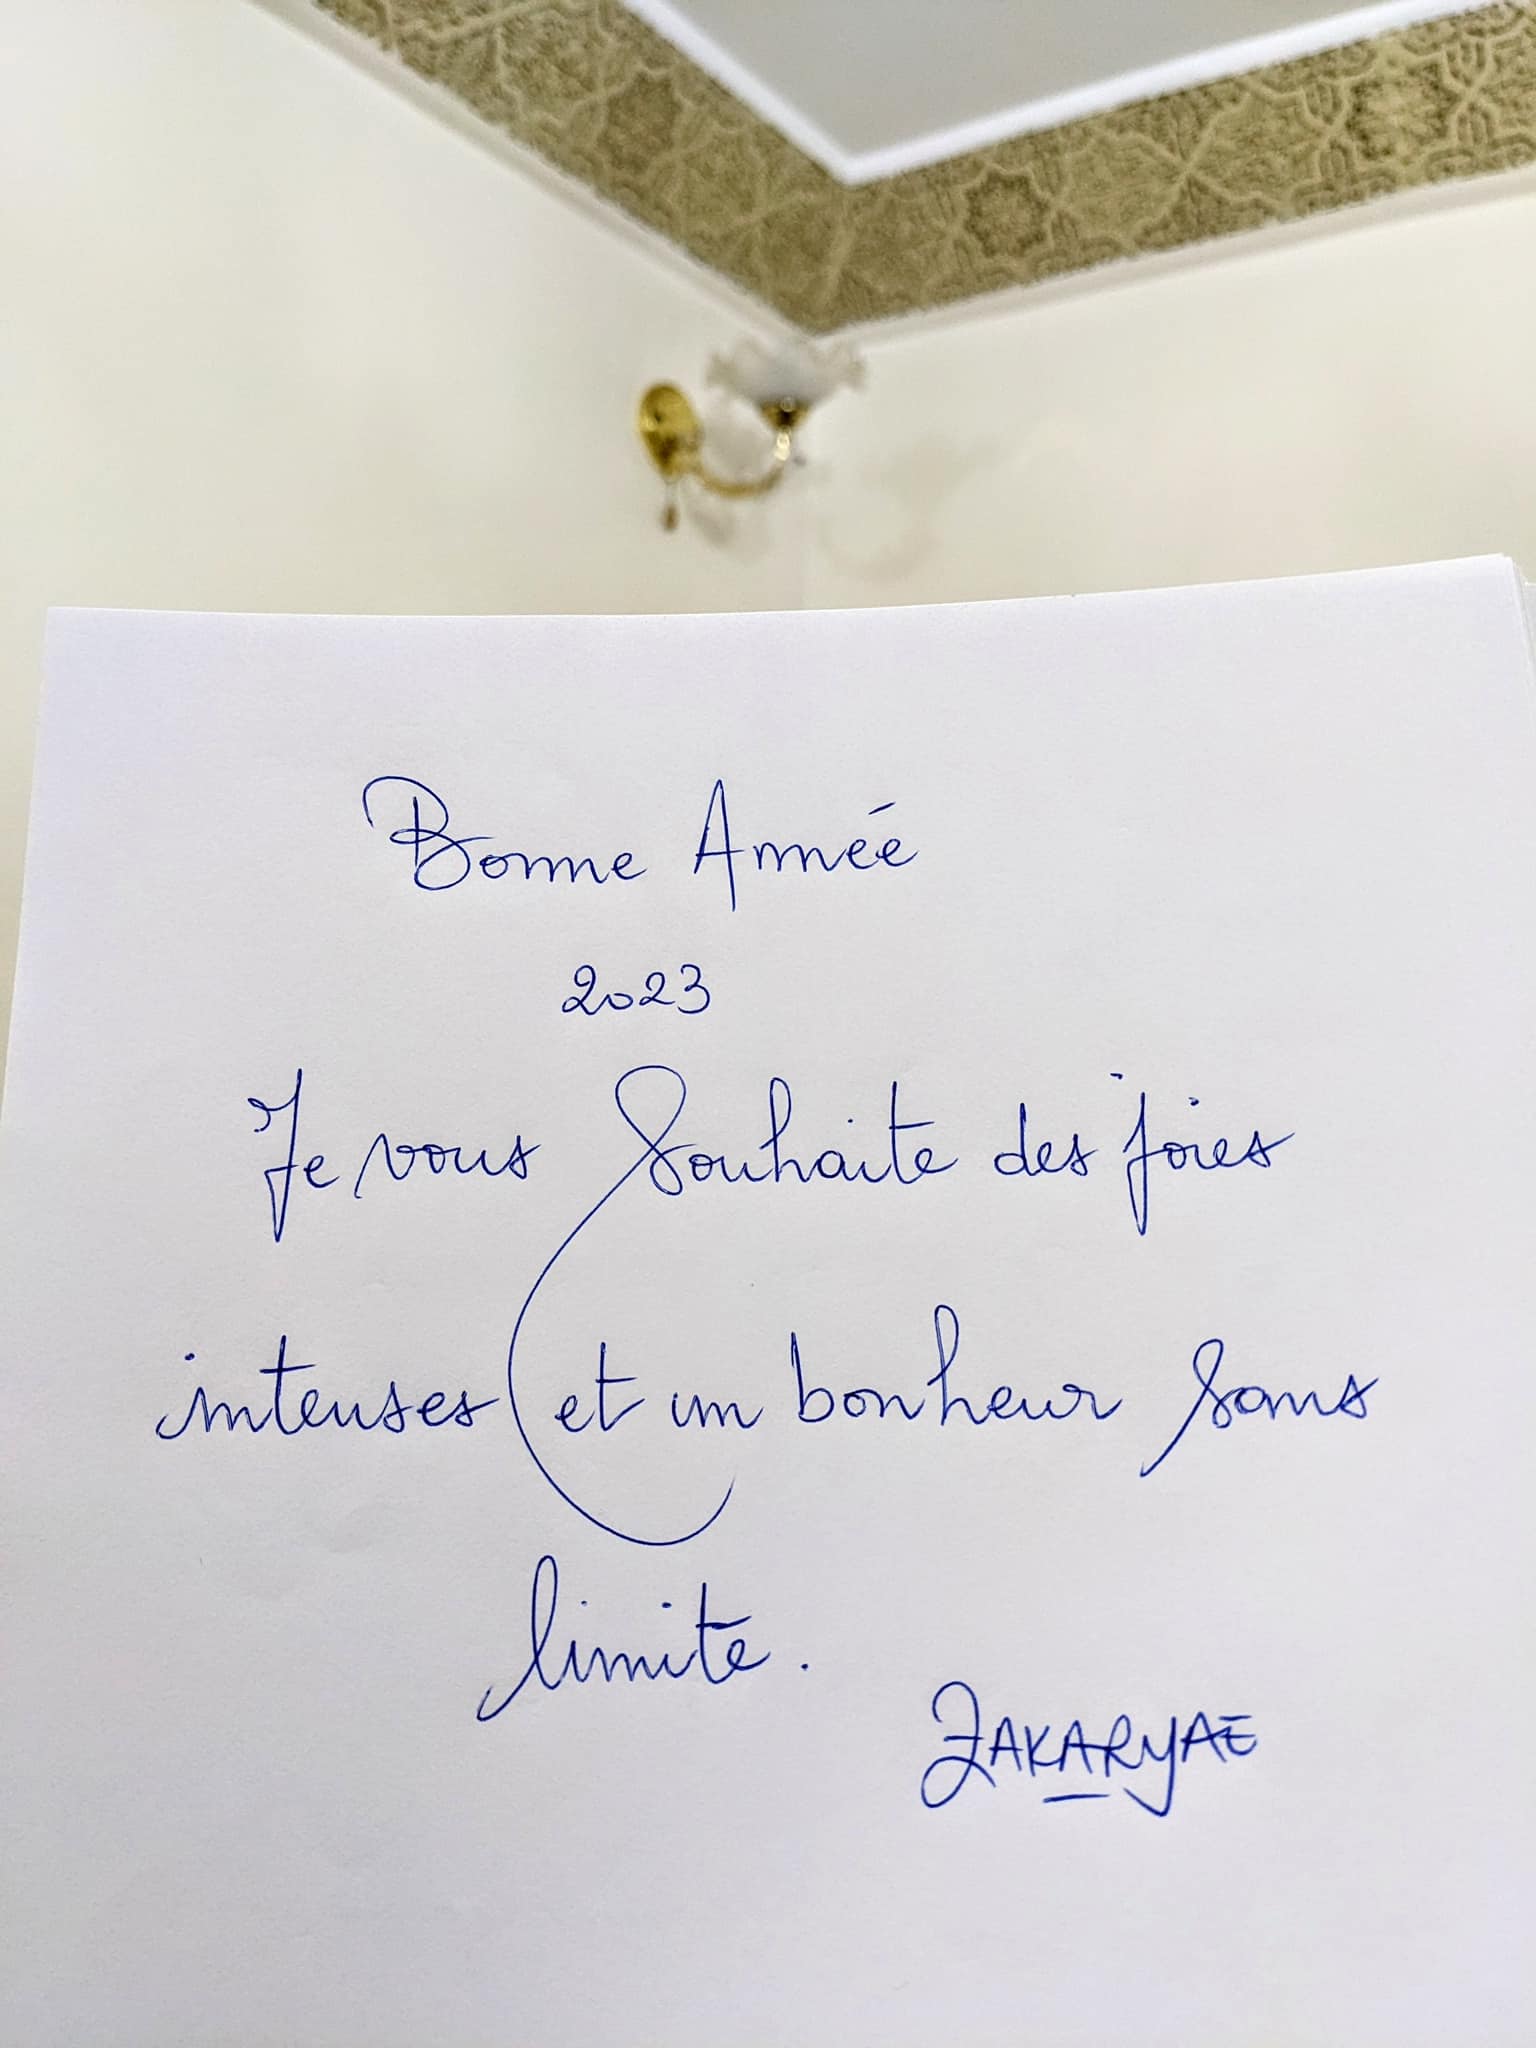 Bonne Année
2023
Je vous souhaite des joies
intenses et un bonheur sans
limite.
ZAKARYAE